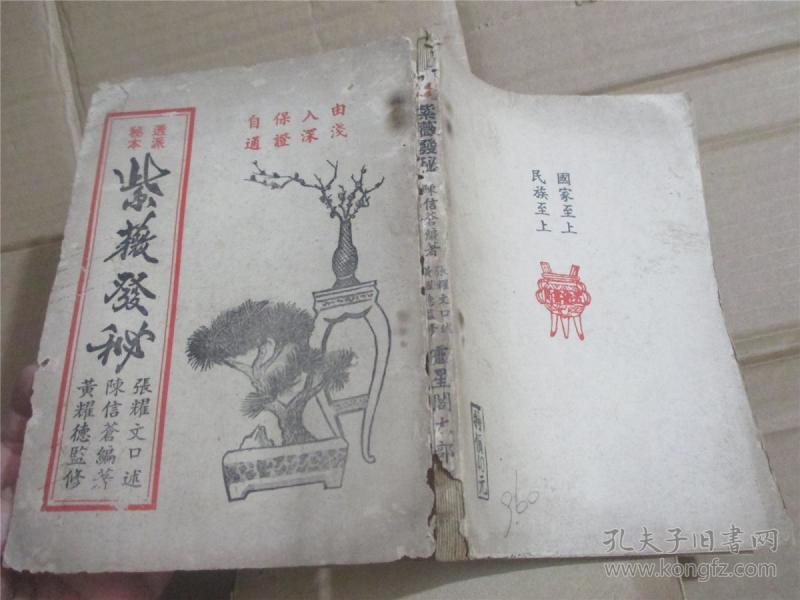 由淺
入深
保證
自通
透派
秘本
紫薇發秘
張耀文口述
陳信蒼編著
黃耀德監修
紫薇發秘
陳信蒼編著
張耀文口述
黃耀德監修
國家至上
民族至上
960
孔夫子旧书网
www.kongfz.com